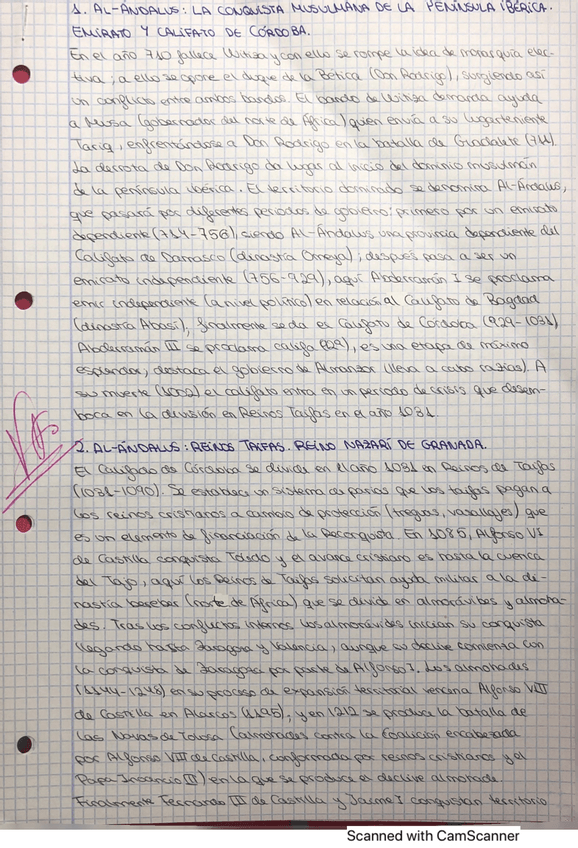 1. AL-ÁNDALUS: LA CONQUISTA MUSULMANA DE LA PENÍNSULA IBÉRICA.
EMIRATO Y CALIFATO DE CÓRDOBA.
En el año 710 fallece Witiza y con ello se rompe la idea de monarquía elec-
tiva; a ello se opone el duque de la Bética (Don Rodrigo), surgiendo así
un conflicto entre ambos bandos. El bando de Witiza demanda ayuda
a Musa (gobernador del norte de África) quien envía a su lugarteniente
Tariq, enfrentándose a Don Rodrigo en la batalla de Guadalete (711).
La derrota de Don Rodrigo da lugar al inicio del dominio musulmán
de la península ibérica. El territorio dominado se denomina Al-Ándalus,
que pasará por diferentes periodos de gobierno: primero por un emirato
dependiente (714-756), siendo Al-Ándalus una provincia dependiente del
Califato de Damasco (dinastía Omeya); después pasa a ser un
emirato independiente (756-929), aquí Abderramán I se proclama
emir independiente (a nivel político) en relación al Califato de Bagdad
(dinastía Abasí), finalmente se da el Califato de Córdoba (929-1031),
Abderramán III se proclama califa (929), es una etapa de máximo
esplendor, destaca el gobierno de Almanzor (lleva a cabo razias). A
su muerte (1002) el califato entra en un periodo de crisis que desem-
boca en la división en Reinos Taifas en el año 1031.
2. AL-ÁNDALUS: REINOS TAIFAS. REINO NAZARÍ DE GRANADA.
El Califato de Córdoba se divide en el año 1031 en Reinos de Taifas
(1031-1090). Se establece un sistema de parias que los taifas pagan a
los reinos cristianos a cambio de protección (treguas, vasallajes) que
es un elemento de financiación de la Reconquista. En 1085, Alfonso VI
de Castilla conquista Toledo y el avance cristiano es hasta la cuenca
del Tajo, aquí los Reinos de Taifas solicitan ayuda militar a la di-
nastía bereber (norte de África) que se divide en almorávides y almoha-
des. Tras los conflictos internos los almorávides inician su conquista
llegando hasta Zaragoza y Valencia, aunque su declive comienza con
la conquista de Zaragoza por parte de Alfonso I. Los almohades
(1144-1248) en su proceso de expansión territorial vencen a Alfonso VIII
de Castilla en Alarcos (1195), y en 1212 se produce la batalla de
Las Navas de Tolosa (almohades contra la Coalición encabezada
por Alfonso VIII de Castilla, conformada por reinos cristianos y el
Papa Inocencio III) en la que se produce el declive almohade.
Finalmente Fernando III de Castilla y Jaime I conquistan territorio
Scanned with CamScanner